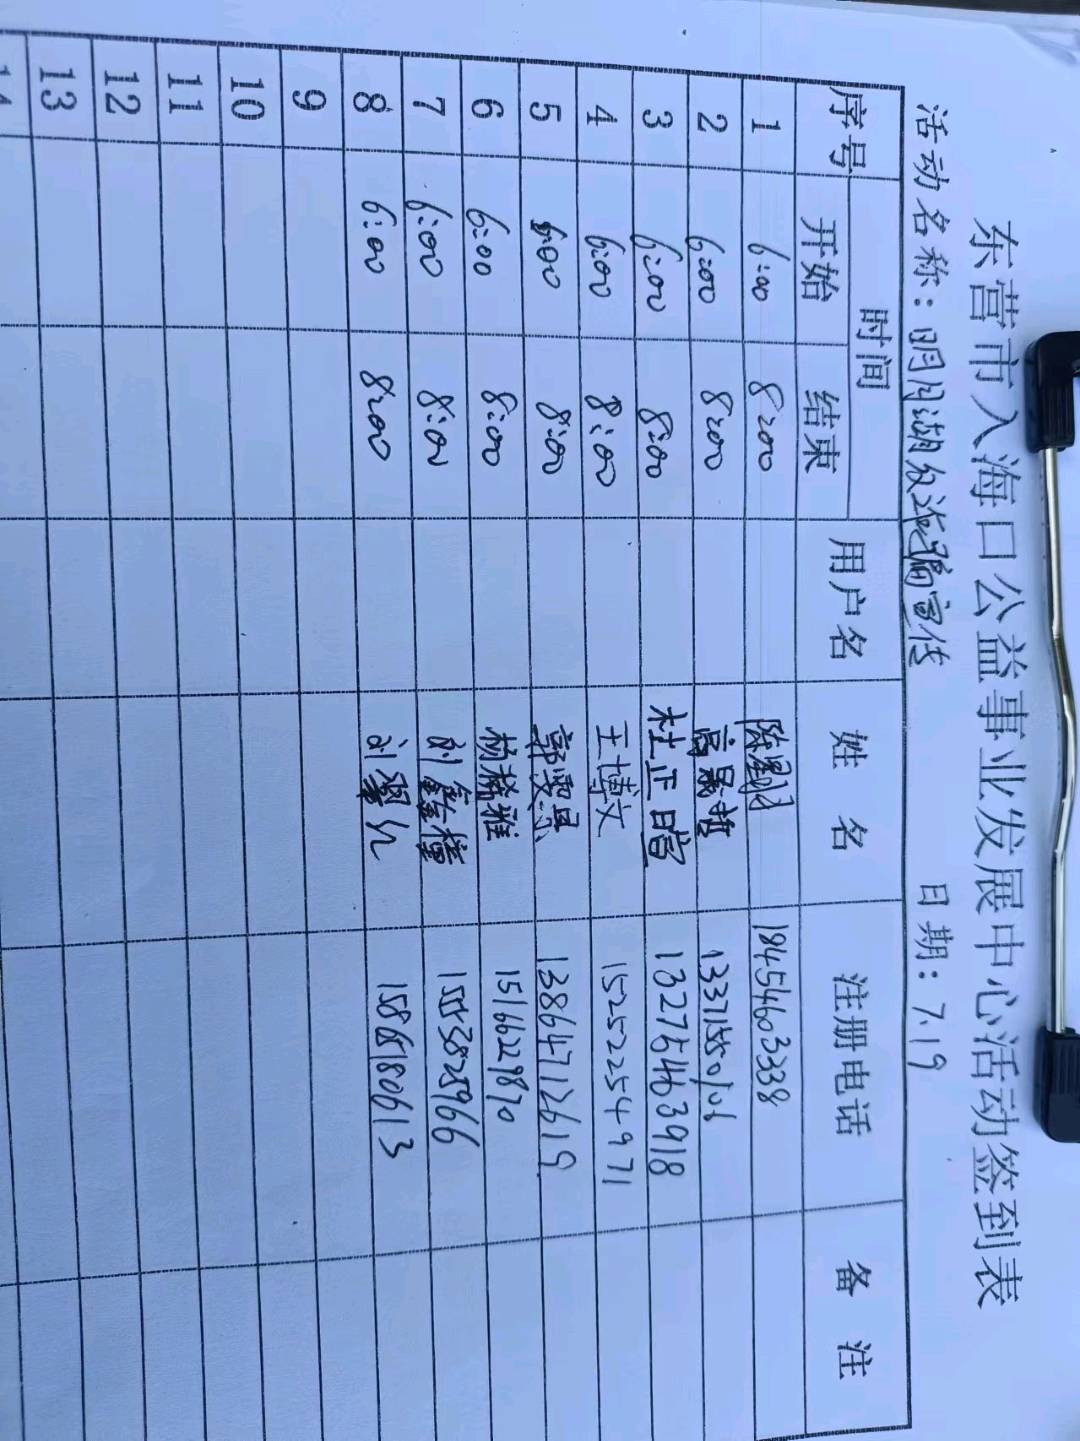 东营市入海口公益事业发展中心活动签到表
活动名称：明月湖反诈骗宣传 日期：7.19
序号 时间 用户名 姓名 注册电话 备注
开始 结束
1 6:00 8:00 18454603338
2 6:00 8:00 高晟哲
3 6:00 8:00 杜正暄 13275463918
4 6:00 8:00 王博文 15252254971
5 6:00 8:00 13864712619
6 6:00 8:00 15166229870
7 6:00 8:00 刘鑫橦 15553825966
8 6:00 8:00 15865180613
9
10
11
12
13
14